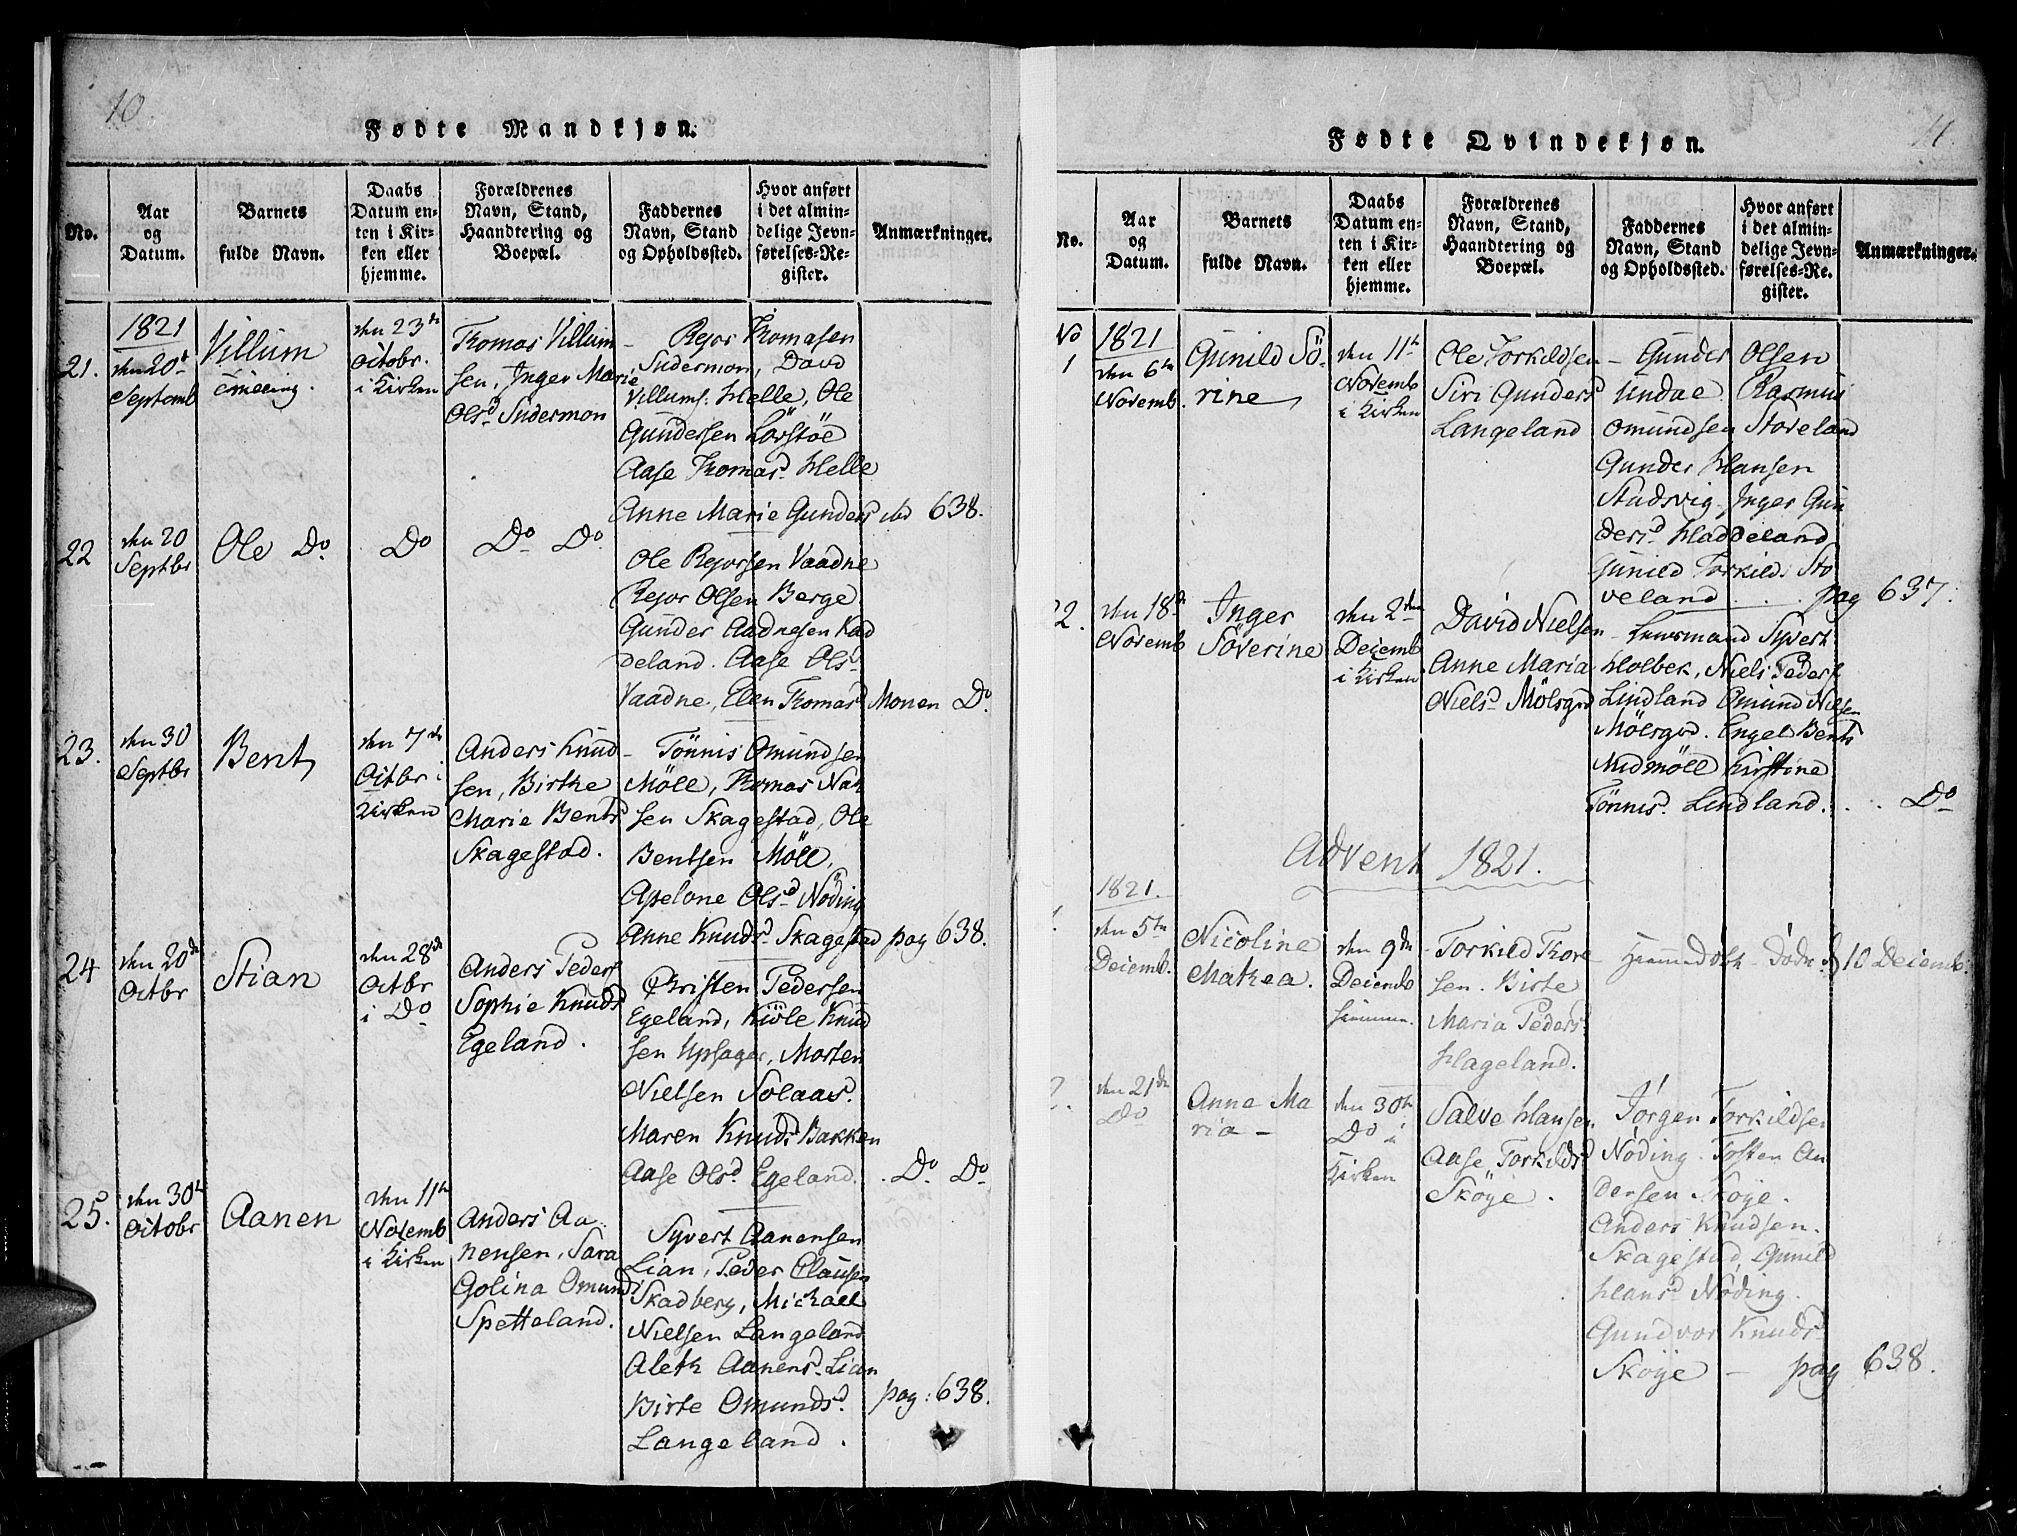 10.
Fødte Mandkjøn.
No.
Aar
og
Datum.
Barnets
fulde Navn.
Daabs
Datum en-
ten i Kir-
ken eller
hjemme.
Forældrenes
Navn, Stand,
Haandtering og
Boepæl.
Faddernes
Navn, Stand
og Opholdssted.
Hvor anført
i det almin-
delige Jevn-
førelses-Re-
gister.
Anmærkninger.
21.
1821
den 20de
Septemb
Villum
Tvilling.
den 23de
Octobr.
i Kirken
Thomas Villum
sen, Inger Marie
Olsd Sudermon
Rejor Thomasen
Sudermon, David
Villums. Helle, Ole
Gundersen Lörstöe
Aase Thomasd Helle
Anne Marie Gunders ibd 638.
22
den 20
Septbr
Ole Do
Do
Do Do
Ole Rejorsen Vaadne
Rejor Olsen Berge
Gunder Aadnesen Kad
deland. Aase Olsd
Vaadne, Elen Thomasd Monen Do.
23.
den 30
Septbr
Bent
den 7de
Octbr i
Kirken
Anders Knud
sen, Birthe
Marie Bentsd
Skagestad.
Tönnis Omundsen
Möll, Thomas Na
sen Skagestad, Ole
Bentsen Möll,
Apelone Olsd Nöding
Anne Knudsd Skagestad pag 638.
24
den 20de
Octbr
Stian
den 28de
Octbr
i Do
Anders Peders
Sophie Knudsd
Egeland.
Christen Pedersen
Egeland, Kiöle Knud
sen Upsager, Morten
Nielsen Solaas.
Maren Knudsd Bakken
Aase Olsd Egeland. . Do Do
25.
den 30te
Octobr
Aanen
den 11te
Novemb
i Kirken
Anders Aa
nensen, Sara
Golina Omunds
Spetteland.
Syvert Aanensen
Lian, Peder Clausen
Skadberg, Michael
Nielsen Langeland
Aleth Aanensd Lian
Birte Omundsd pag: 638.
Langeland.
11.
Fødte Qvindekjøn.
No.
Aar
og
Datum.
Barnets
fulde Navn.
Daabs
Datum en-
ten i Kir-
ken eller
hjemme.
Forældrenes
Navn, Stand,
Haandtering og
Boepæl.
Faddernes
Navn, Stand
og Opholdssted.
Hvor anført
i det almin-
delige Jevn-
førelses-Re-
gister.
Anmærkninger.
No
1
1821
den 6te
Novemb.
Gunild Sö-
rine
den 11te
Novemb
i Kirken
Ole Torkildsen
Siri Gundersd
Langeland
Gunder Olsen
Undal Rasmus
Omundsen Stoveland
Gunder Hansen
Stadsvig. Inger Gun
dersd Haddeland
Gunild Torkilds Sto
veland . . pag 637.
22.
den 18de
Novemb
Inger
Söverine
den 2den
Decemb
i Kirken
David Nielsen
Anne Maria
Nielsd Mölsgrd
Lensmand Syvert
Holbek, Niels Peders
Lindland Omund Nielsen
Mölsgrd. Engel Bents
Midmöll Kirstine
Tönnisd Lindland. . . Do
Advent 1821.
1.
1821.
den 5te
Decemb.
Nicoline
Mathea.
den 9de
Decemb
hiemme.
Torkild Thore
sen. Birte
Maria Peders
Hageland.
Hiemmedöbt Döde d 10 Decemb.
2.
den 21de
Do
Anne Ma
ria
den 30te
Do i
Kirken
Salve Hansen
Aase Torkildsd
Sköye.
Jörgen Torkildsen
Nöding. Tosten An
dersen Sköye.
Anders Knudsen
Skagestad, Gunild
Hansd Nöding.
Gundvor Knudsd
Sköye — pag 638.